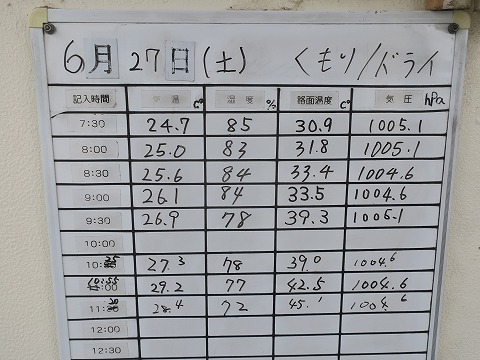 6月27日(土) くもり/ドライ
記入時間 温 C° 湿度 % 路面温度 C° 気圧 hpa
7:30 24.7 85 30.9 1005.1
8:00 25.0 83 31.8 1005.1
8:30 25.6 84 33.4 1004.6
9:00 26.1 84 33.5 1004.6
9:30 26.9 78 39.3 1005.1
10:00
10:25 27.3 78 39.0 1004.6
10:55 29.2 77 42.5 1004.6
11:20 28.4 72 45.1 1004.6
12:00
12:30